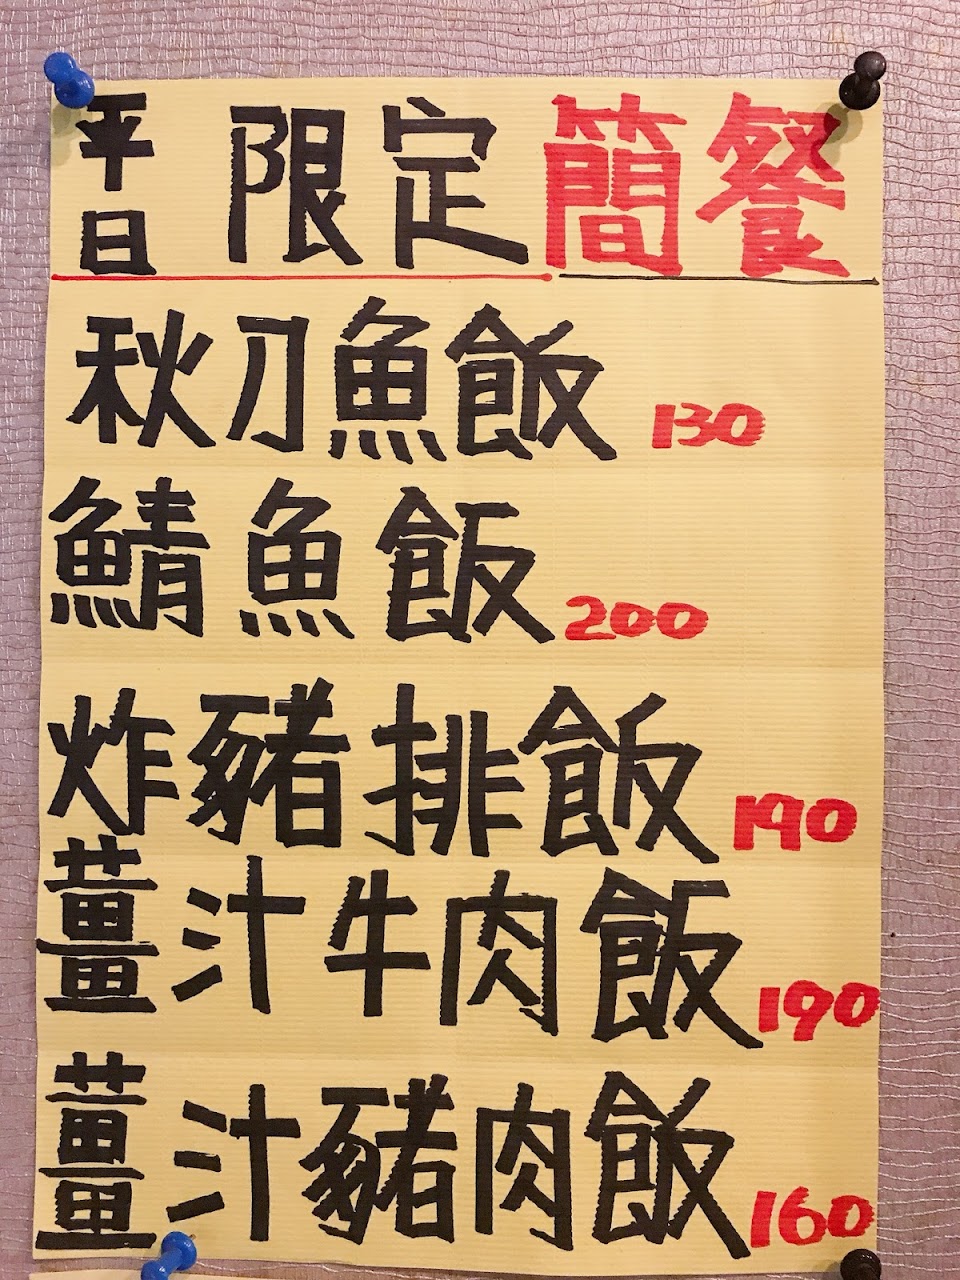 平日限定簡餐
秋刀魚飯 130
鯖魚飯 200
炸豬排飯 190
薑汁牛肉飯 190
薑汁豬肉飯 160